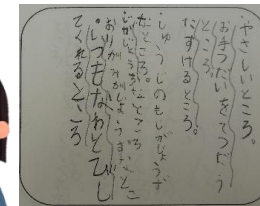 ・やさしいところ。
・おてつだいをてつだう
ところ。
・たすけるところ。
・しゅうじのもじがじょうず
なところ。
おりがみがじょうずなところ
・いつもなわとびし
てくれるところ